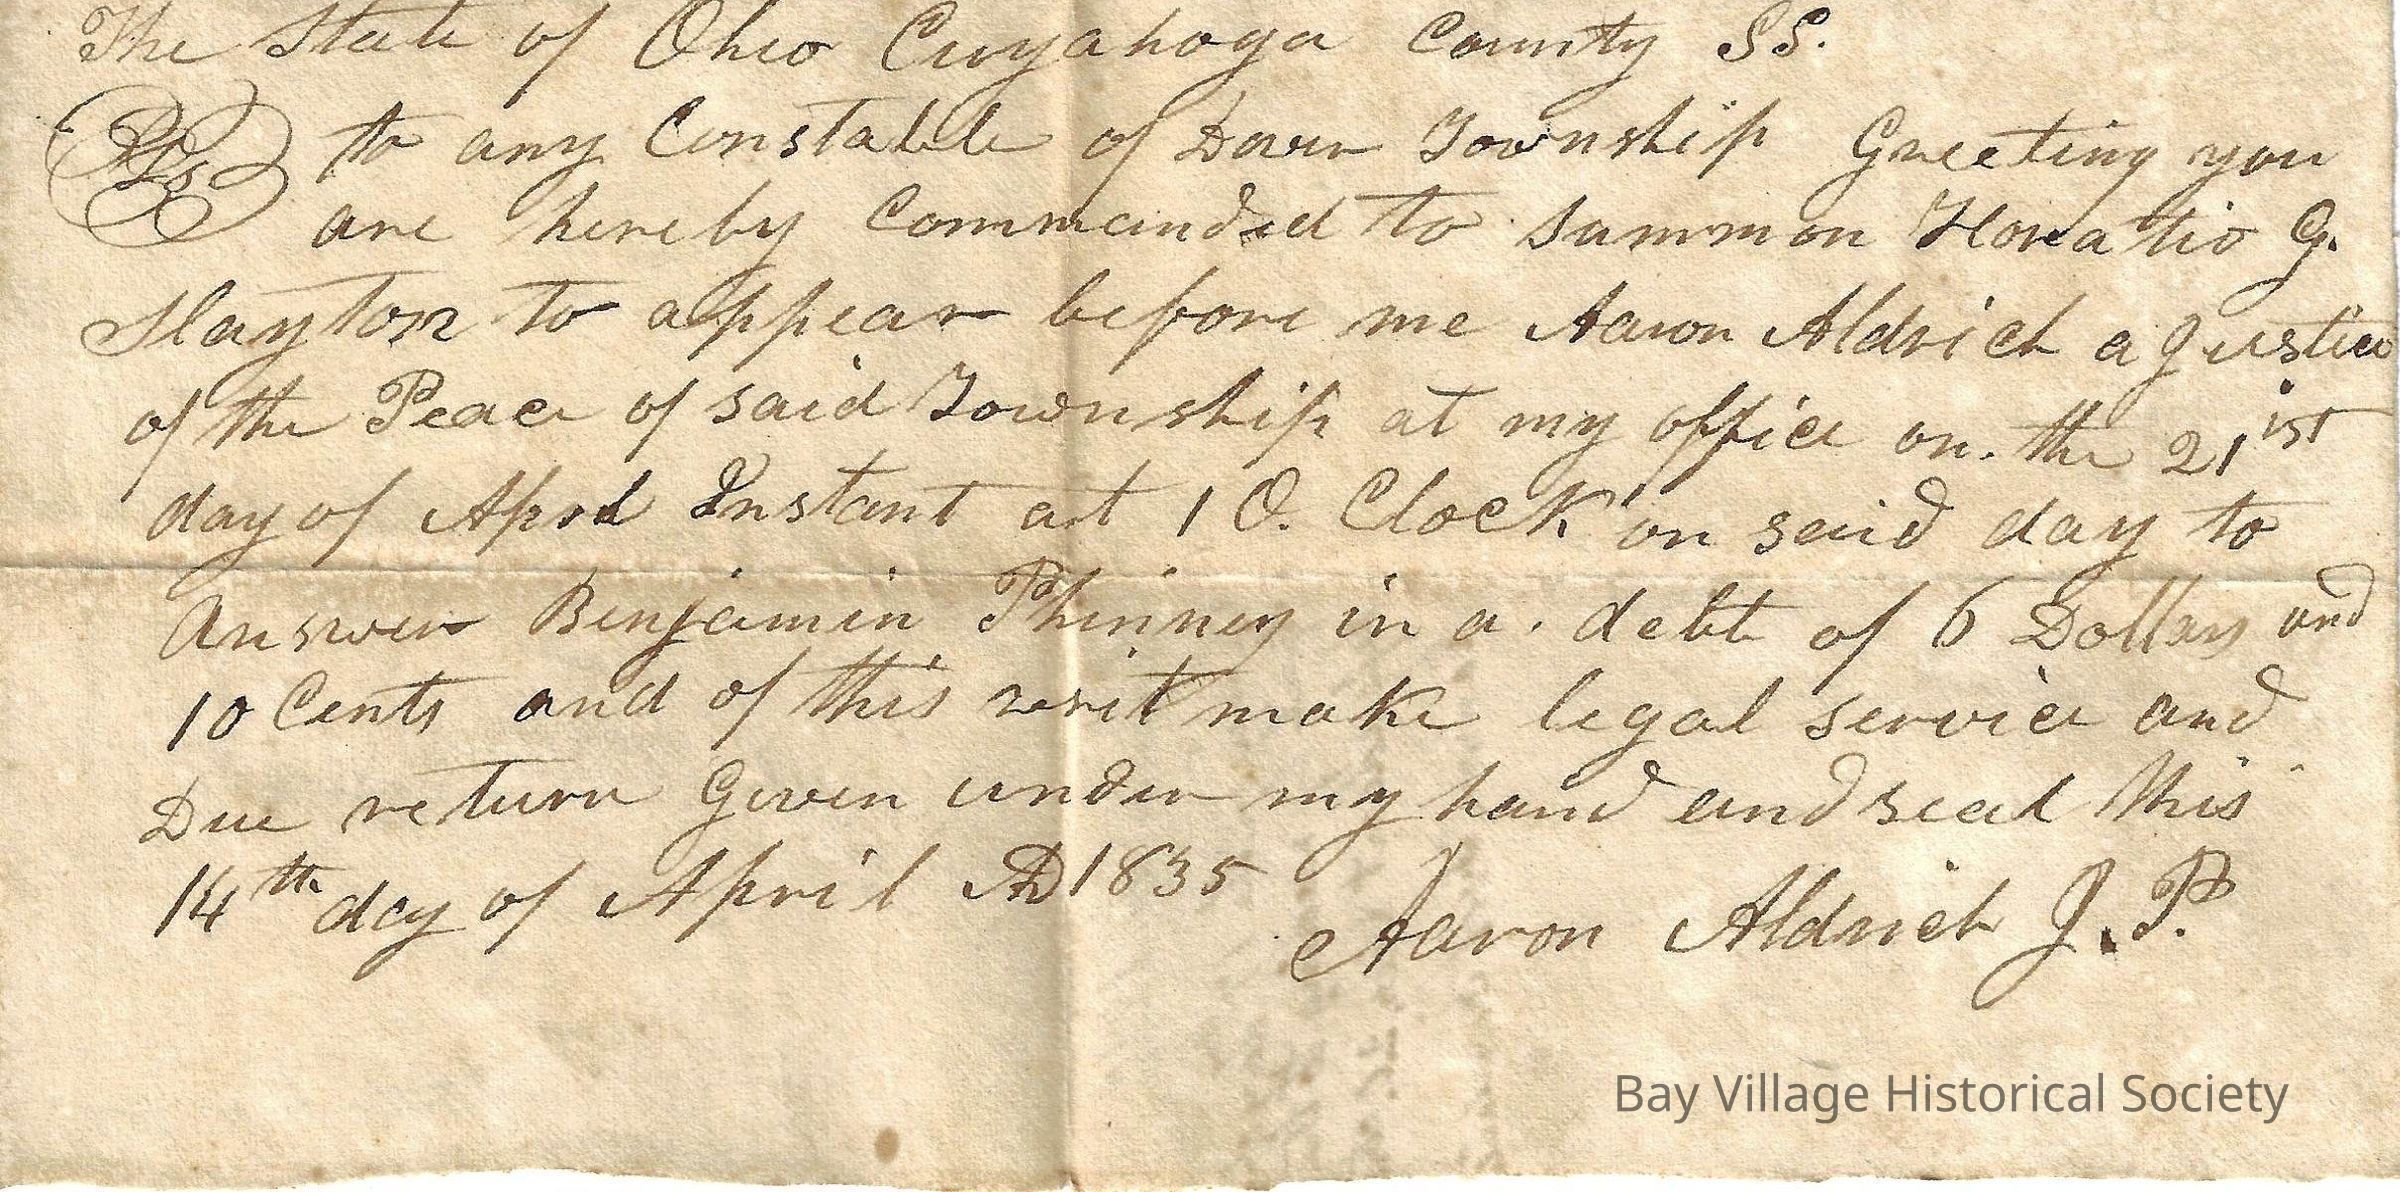 The State of Ohio Cuyahoga County SS.
to any Constable of Dover Township Greeting you
are hereby Commanded to Summon Horatio G.
Slayton to appear before me Aaron Aldrich a Justice
of the Peace of said Township at my office on. the 21ist
day of Aprol Instant at 1 O. Clock on said day to
Answer Benjamin Phinney in a. debt of 6 Dollars and
10 Cents and of this writ make legal service and
Due return Given under my hand and seal this
14th day of April AD 1835
Aaron Aldrich J. P.
Bay Village Historical Society